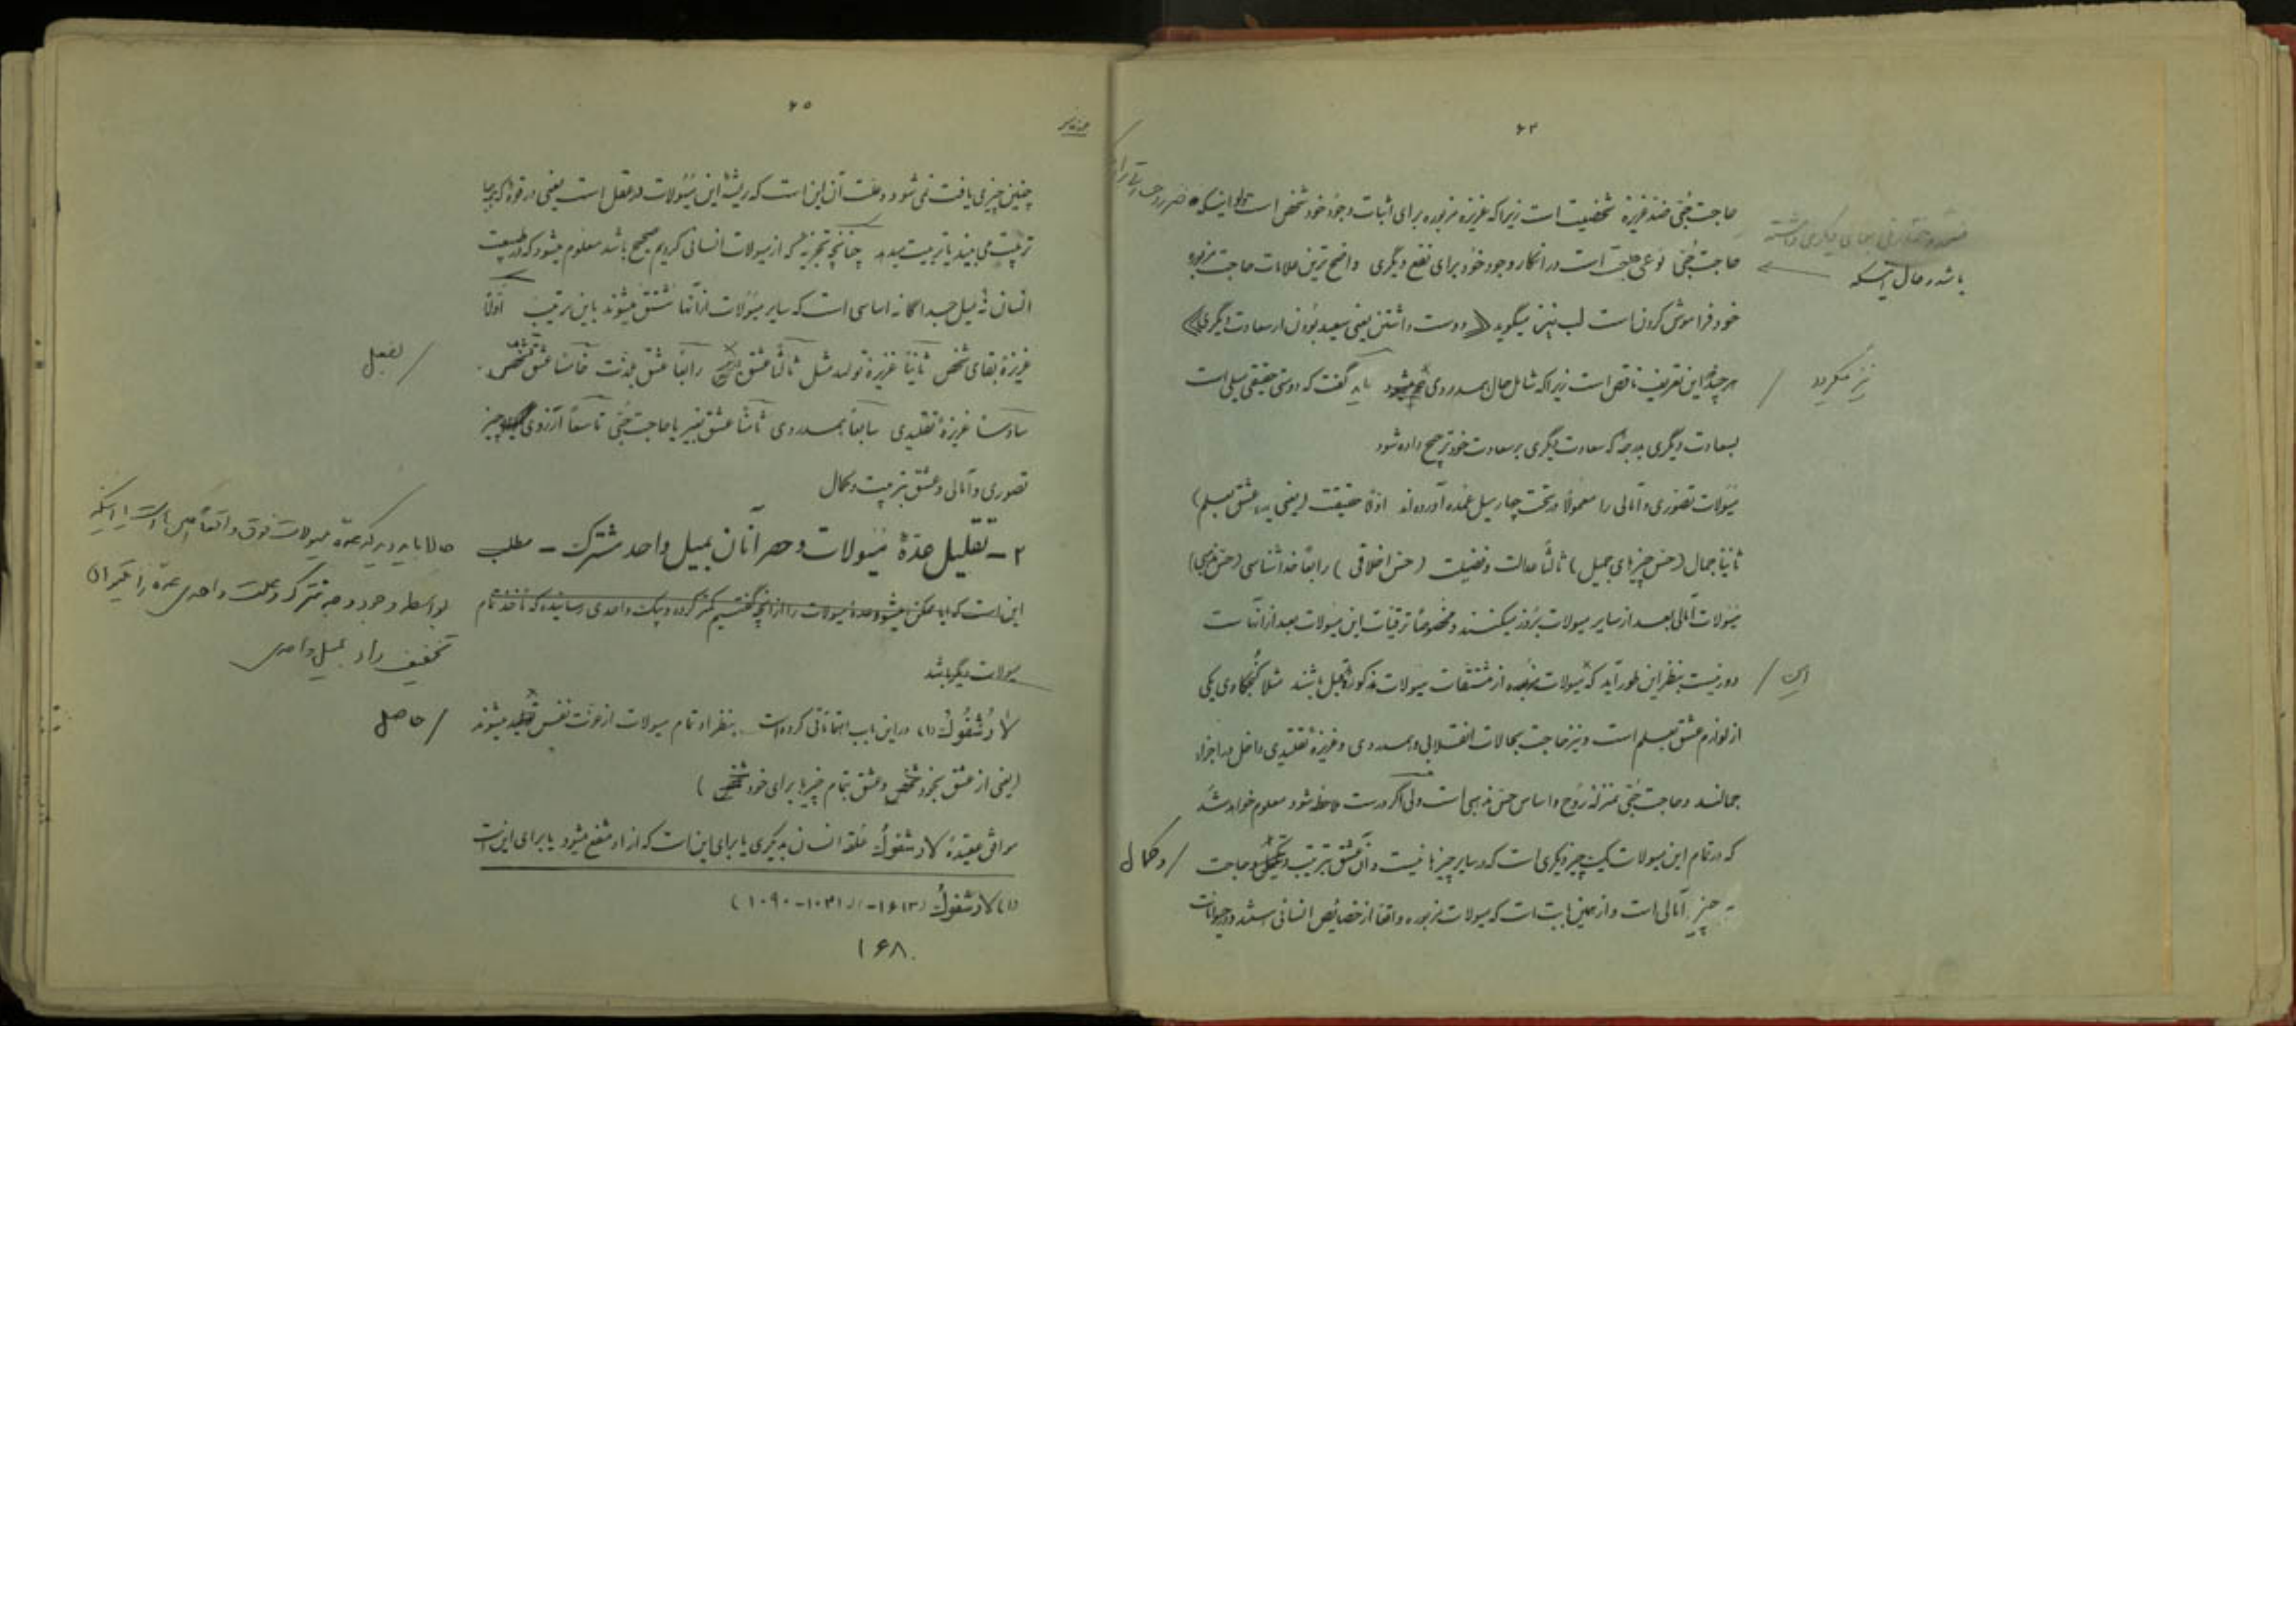 ۶۴
حاجت حُبّی ضد غریزهٔ شخصیت است زیرا که غریزه مزبوره برای اثبات وجود خود شخص است
باشد در حال آنکه
حاجت حُبّی نوعی است در انکار وجود خود برای نفع دیگری و واضح ترین علامات حاجت مزبوره
خود فراموش کردن است لیب نیز میگوید «دوست داشتن یعنی سعید بودن از سعادت دیگری»
هر چند این تعریف ناقص است زیرا که شامل حال همدردی هم میشود باید گفت که دوستی حقیقی میلی است
بسعادت دیگری بدرجهٔ که سعادت دیگری بر سعادت خود ترجیح داده شود
میولات تصوری و آمالی را معمولاً در تحت چهار میل عمده آورده‌اند اولاً حقیقت (یعنی عشق بعلم)
ثانیاً جمال (حس چیزهای جمیل) ثالثاً عدالت و فضیلت (حس اخلاقی) رابعاً خداشناسی (حس مذهبی)
میولات آمالی بعد از سایر میولات بروز میکنند و مخصوصاً ترقیات این میولات بعد از آنهاست
این /
دور نیست بنظر این طور آید که میولات از مشتقات میولات مذکوره قبل باشند مثلا کنجکاوی یکی
از لوازم عشق بعلم است و نیز حاجت بحالات انقلابی و همدردی و غریزهٔ تقلیدی داخل در اجزاء
جمالند و حاجت حُبّی بمنزله روح و اساس حس مذهبی است ولی اگر درست ملاحظه شود معلوم خواهد شد
که در تمام این میولات یک چیز دیگری است که در سایر چیزها نیست و آن عشق بترتیب و حاجت
/ و کمال
به چیز آمالی است و از همین بابت است که میولات مزبوره واقعاً از خصائص انسانی هستند و در حیوانات
۶۵
چنین چیزی یافت نمی شود و علت آن این است که ریشهٔ این میولات در عقل است یعنی در قوهٔ که یا
ترتیب می بیند یا ترتیب میدهد چنانچه تجزیهٔ که از میولات انسانی کردیم صحیح باشد معلوم میشود که در طبیعت
انسان نُه میل جداگانه اساسی است که سایر میولات از آنها مشتق میشوند باین ترتیب اولاً
غریزهٔ بقای شخص ثانیاً غریزهٔ تولید مثل ثالثاً عشق رابعاً عشق بلذت خامساً عشق شخصی
/ بفعل
سادساً غریزهٔ تقلیدی سابعاً همدردی ثامناً عشق بغیر یا حاجت حُبّی تاسعاً آرزوی چیز
تصوری و آمالی و عشق بترتیب و کمال
۲ ـ تقلیل عدّهٔ میولات و حصر آنان بمیل واحد مشترک ـ مطلب
حالا باید دید که عدّهٔ میولات فوق واقعاً همین است یا اینکه
این است که آیا ممکن میشود عدهٔ میولات را از آنچه گفتیم کمتر کرده و بیک واحدی رسانیده که مأخذ تمام
بواسطه وجود وجه مشترک و علت واحدی عدّه را میتوان
میولات دیگر باشد
تخفیف داد بمیل واحدی
لارُشفُوک (۱) در این باب اهتماماتی کرده است بنظر او تمام میولات از عزت نفس میشوند
/ حاصل
(یعنی از عشق بخود و عشق بتمام چیزها برای خود)
موافق عقیدهٔ لارشفوک علقه انسان بدیگری یا برای این است که از او منتفع میشود یا برای این است
(۱) لارشفوک (۱۶۱۳ـ ۱۰۳۱-۱۰۹۰)
۱۶۸۰